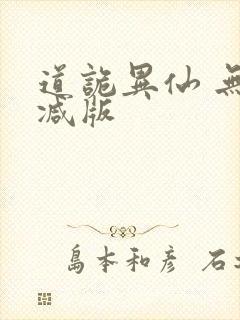 道詭異仙 無
減版
島本和彦 石